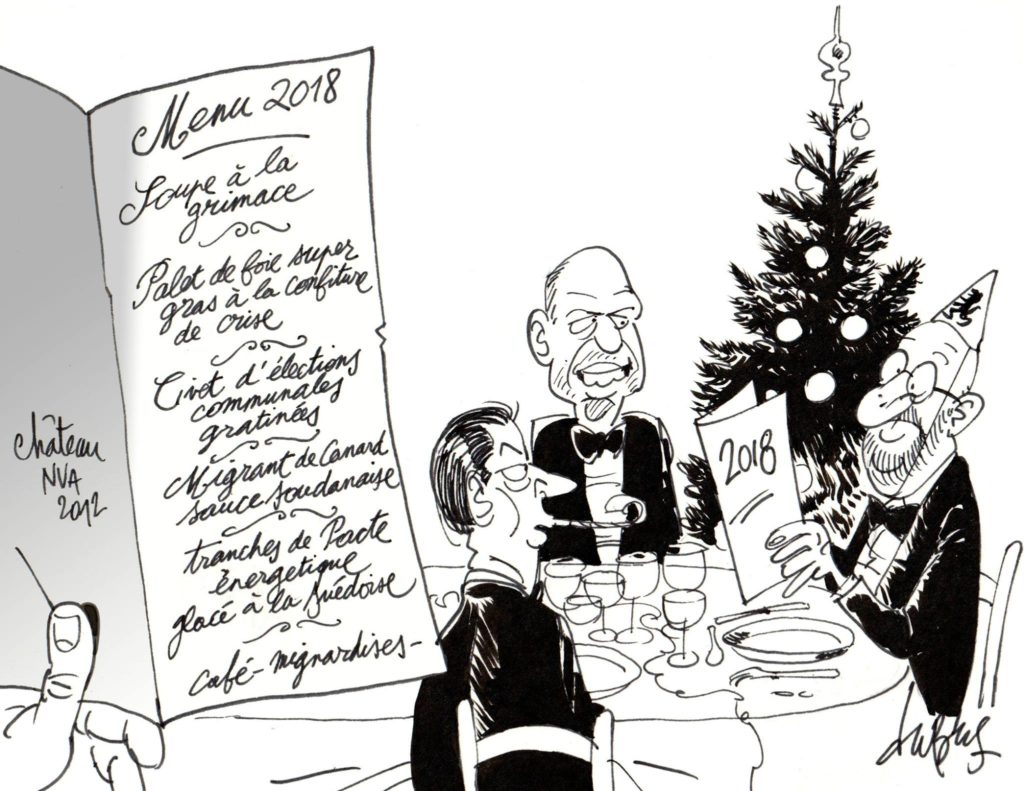 Menu 2018
Soupe à la
grimace
Palet de foie super
gras à la confiture
de crise
Civet d'élections
communales
gratinées
Migrant de Canard
sauce soudanaise
tranches de Pacte
énergetique
glacé à la suédoise
café - mignardises -
Château
NVA
2012
2018
dubus